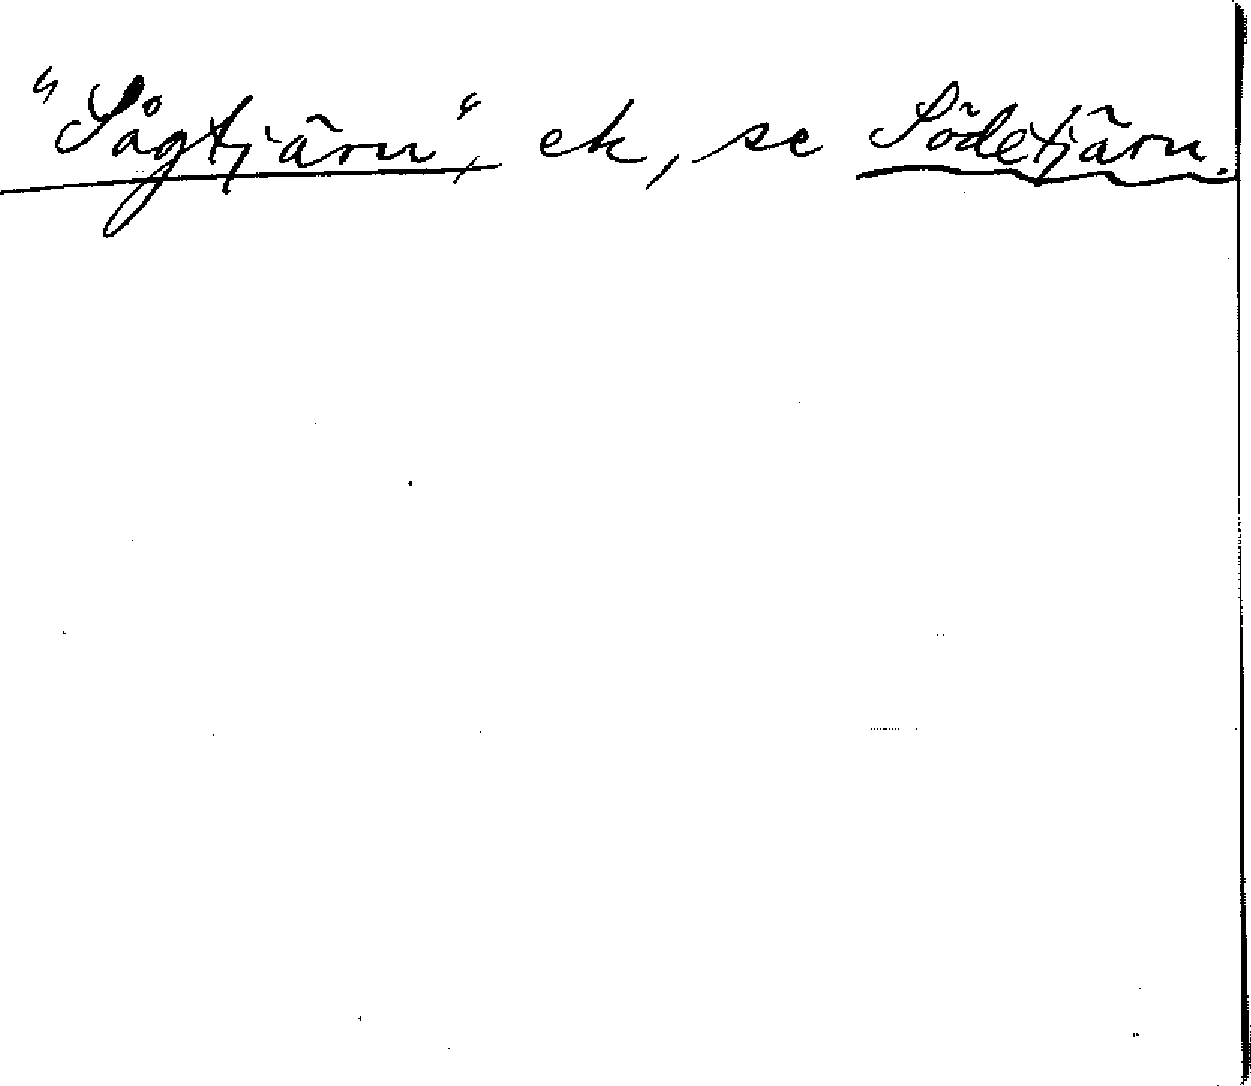 "Sågtjärn", ek, se Södetjärn.